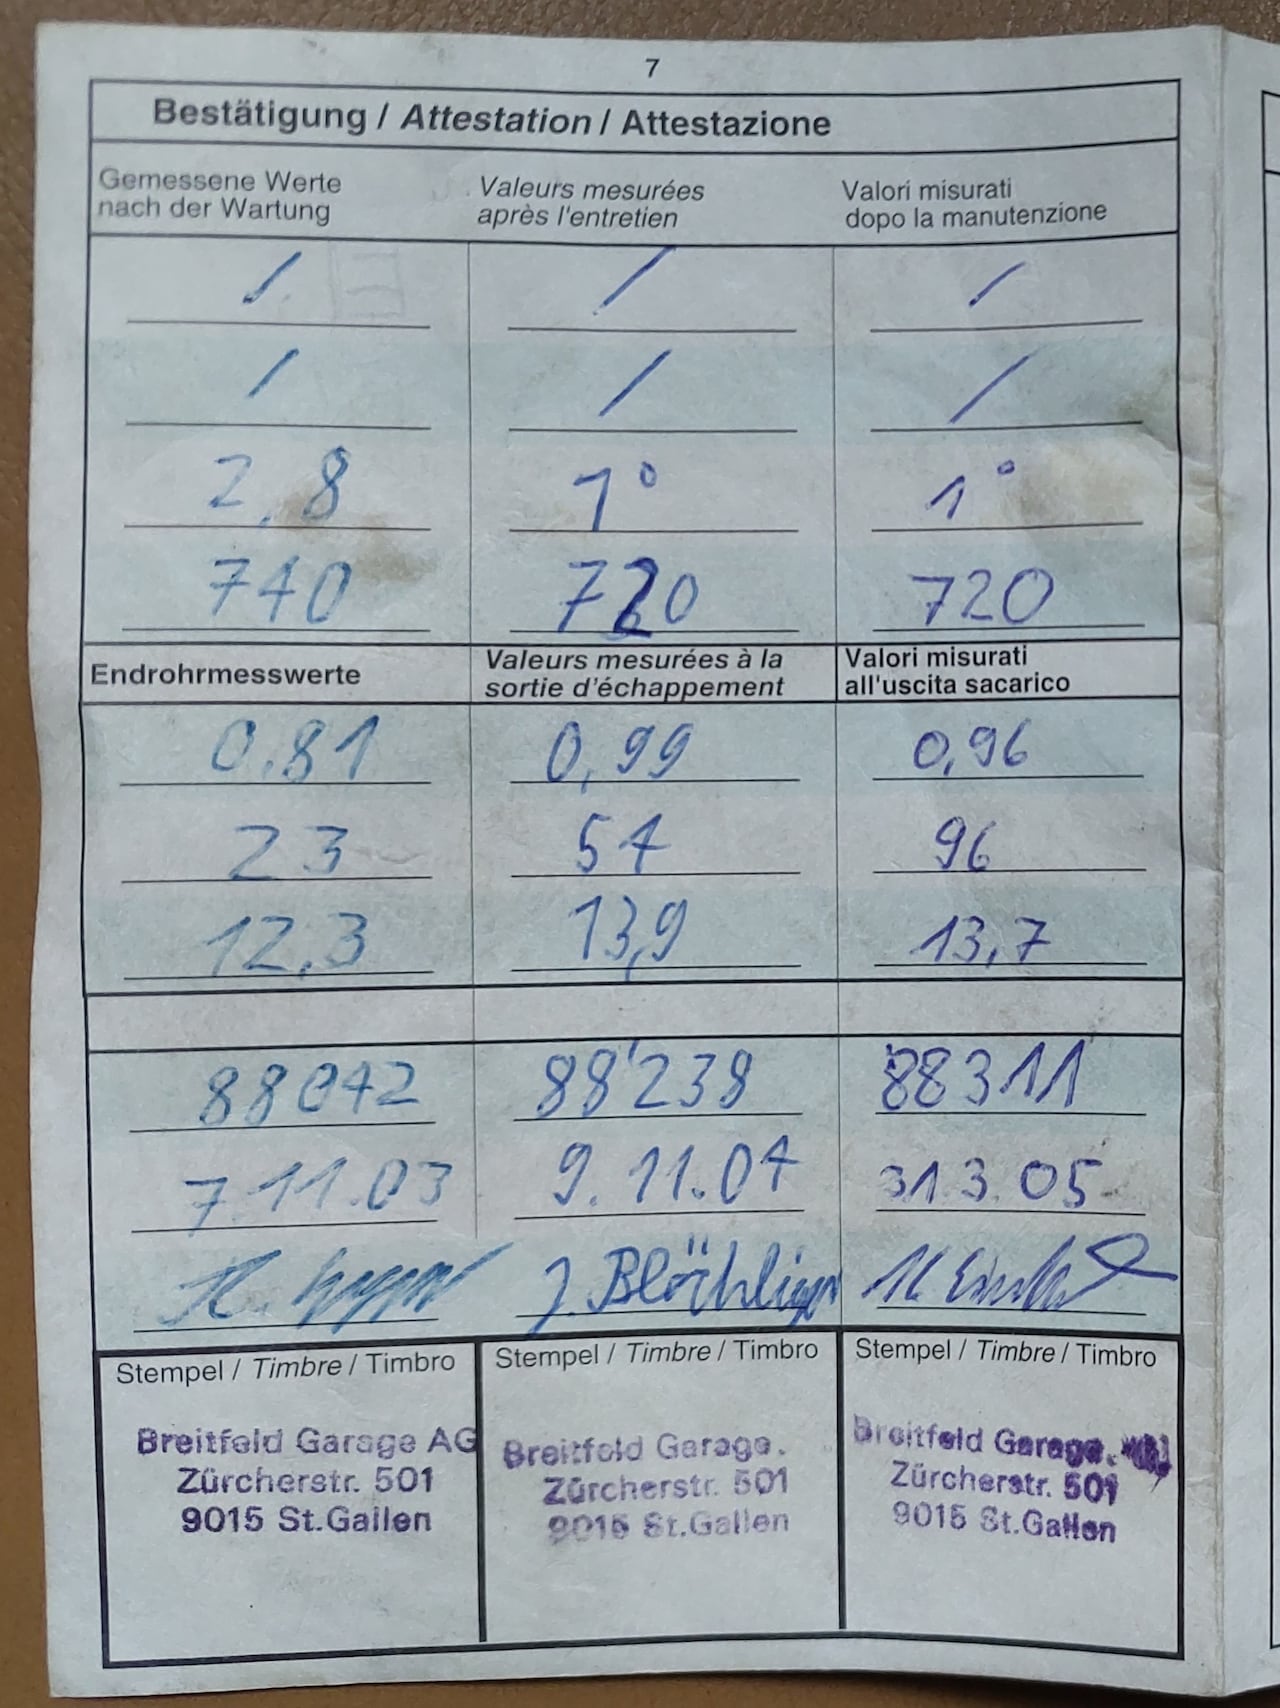 7
Bestätigung / Attestation / Attestazione
Gemessene Werte nach der Wartung
Valeurs mesurées après l'entretien
Valori misurati dopo la manutenzione
/ / /
/ / /
2,8 1° 1°
740 720 720
Endrohrmesswerte
Valeurs mesurées à la sortie d'échappement
Valori misurati all'uscita sacarico
0.81 0,99 0,96
23 54 96
12.3 13,9 13,7
88042 88'238 88311
7.11.03 9.11.04 31.3.05
J. Blöchliger
Stempel / Timbre / Timbro
Breitfeld Garage AG
Zürcherstr. 501
9015 St.Gallen
Stempel / Timbre / Timbro
Breitfeld Garage.
Zürcherstr. 501
9015 St.Gallen
Stempel / Timbre / Timbro
Breitfeld Garage.
Zürcherstr. 501
9015 St.Gallen